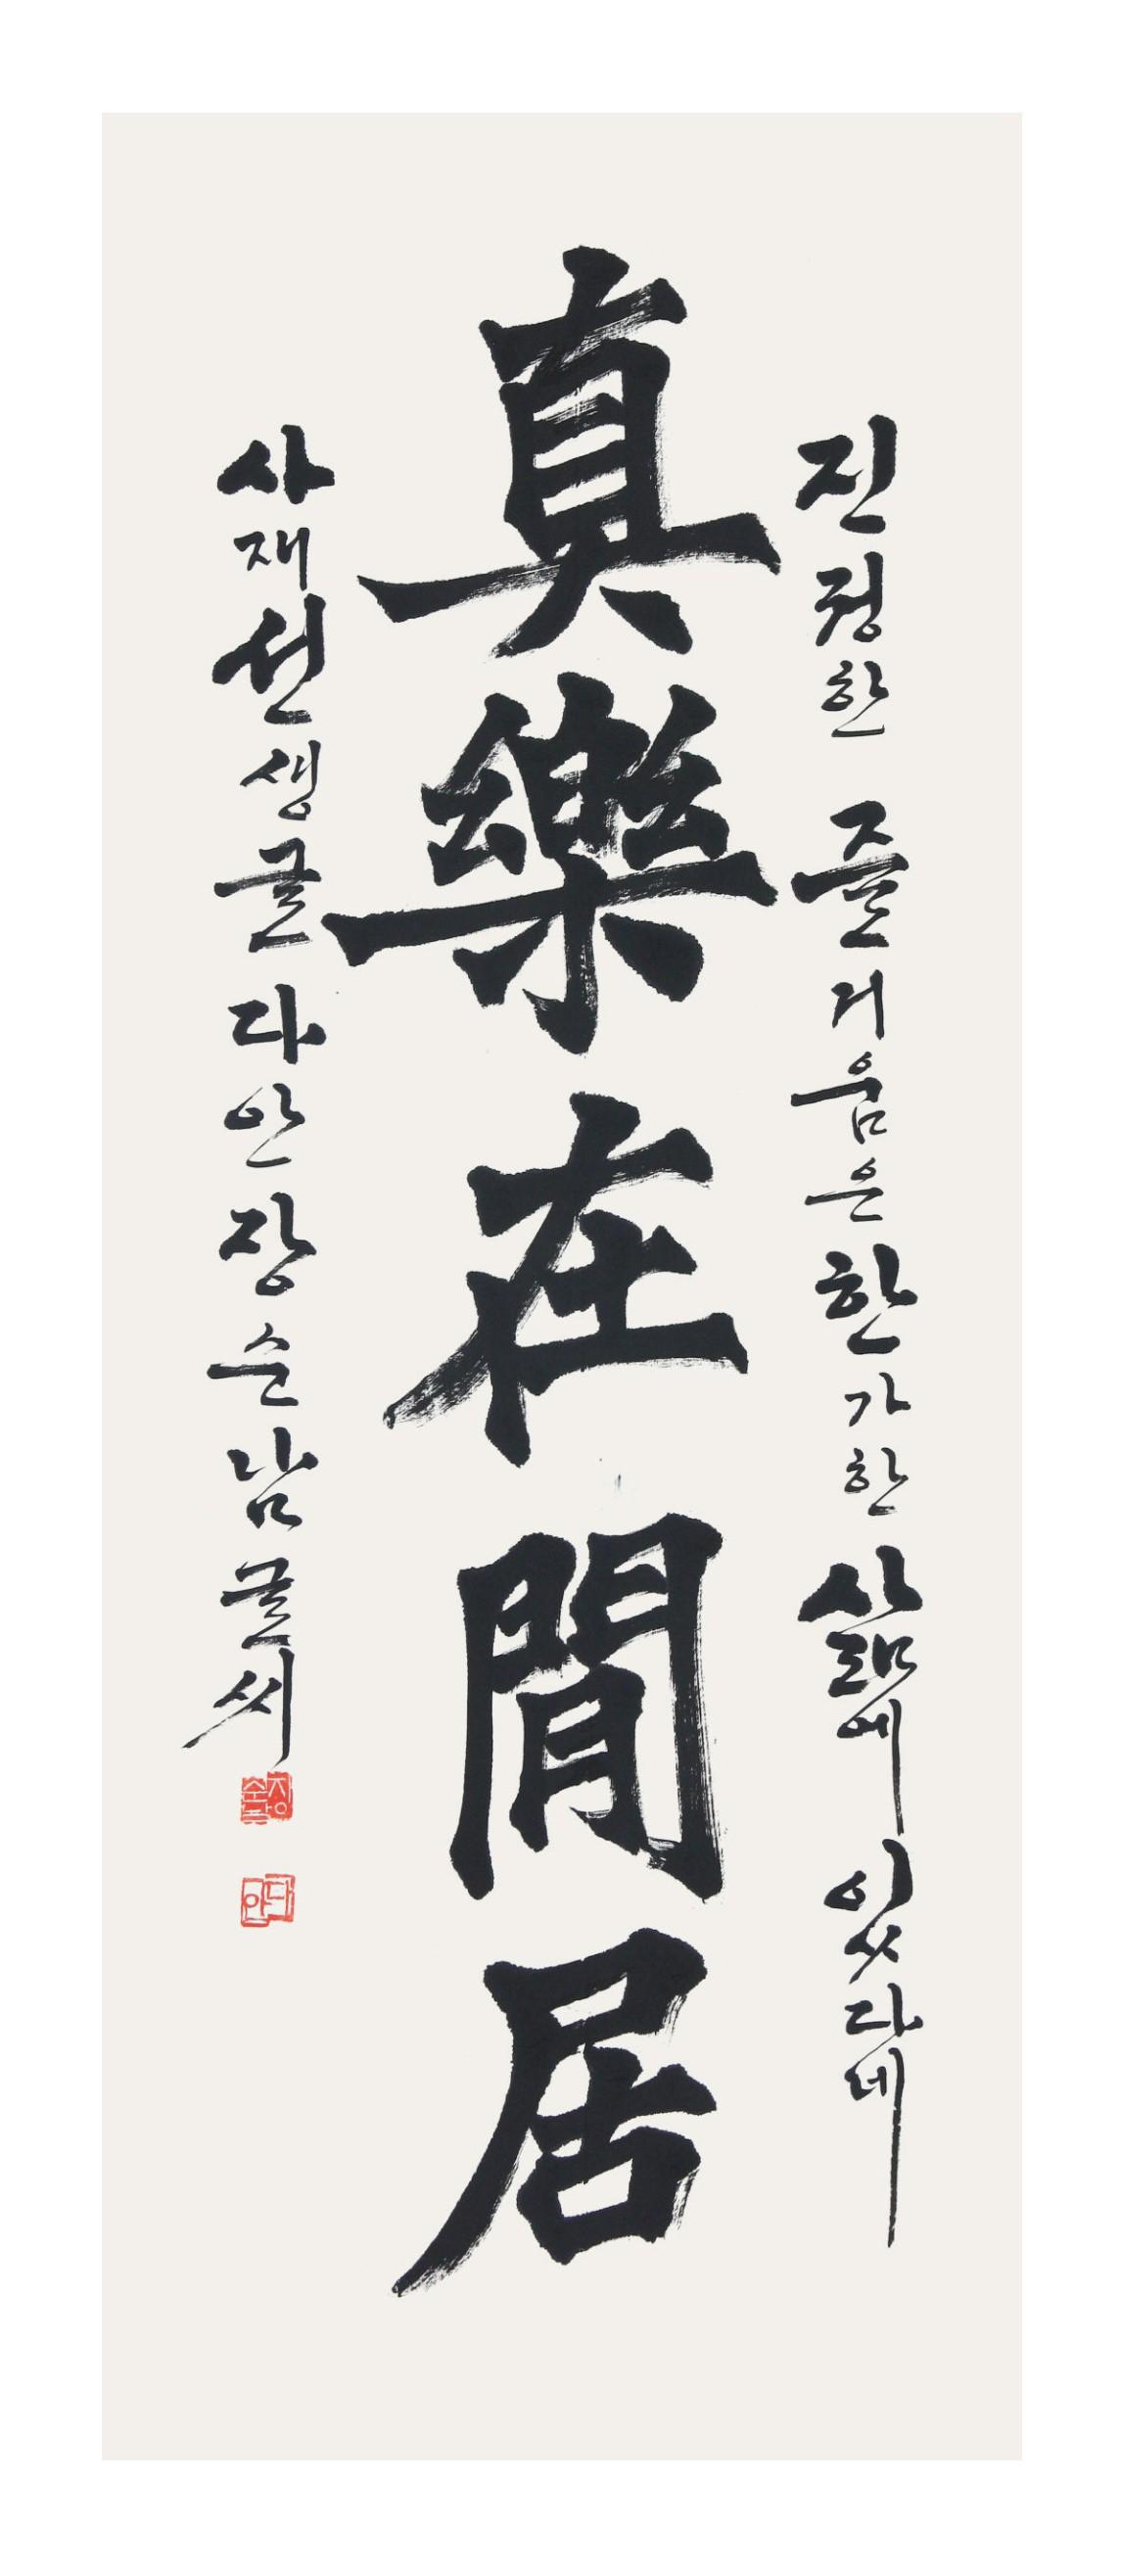 진정한 즐거움은 한가한 삶에 있다네
真樂在閒居
사재선생글 다안 장순남 글씨
장순남
다안